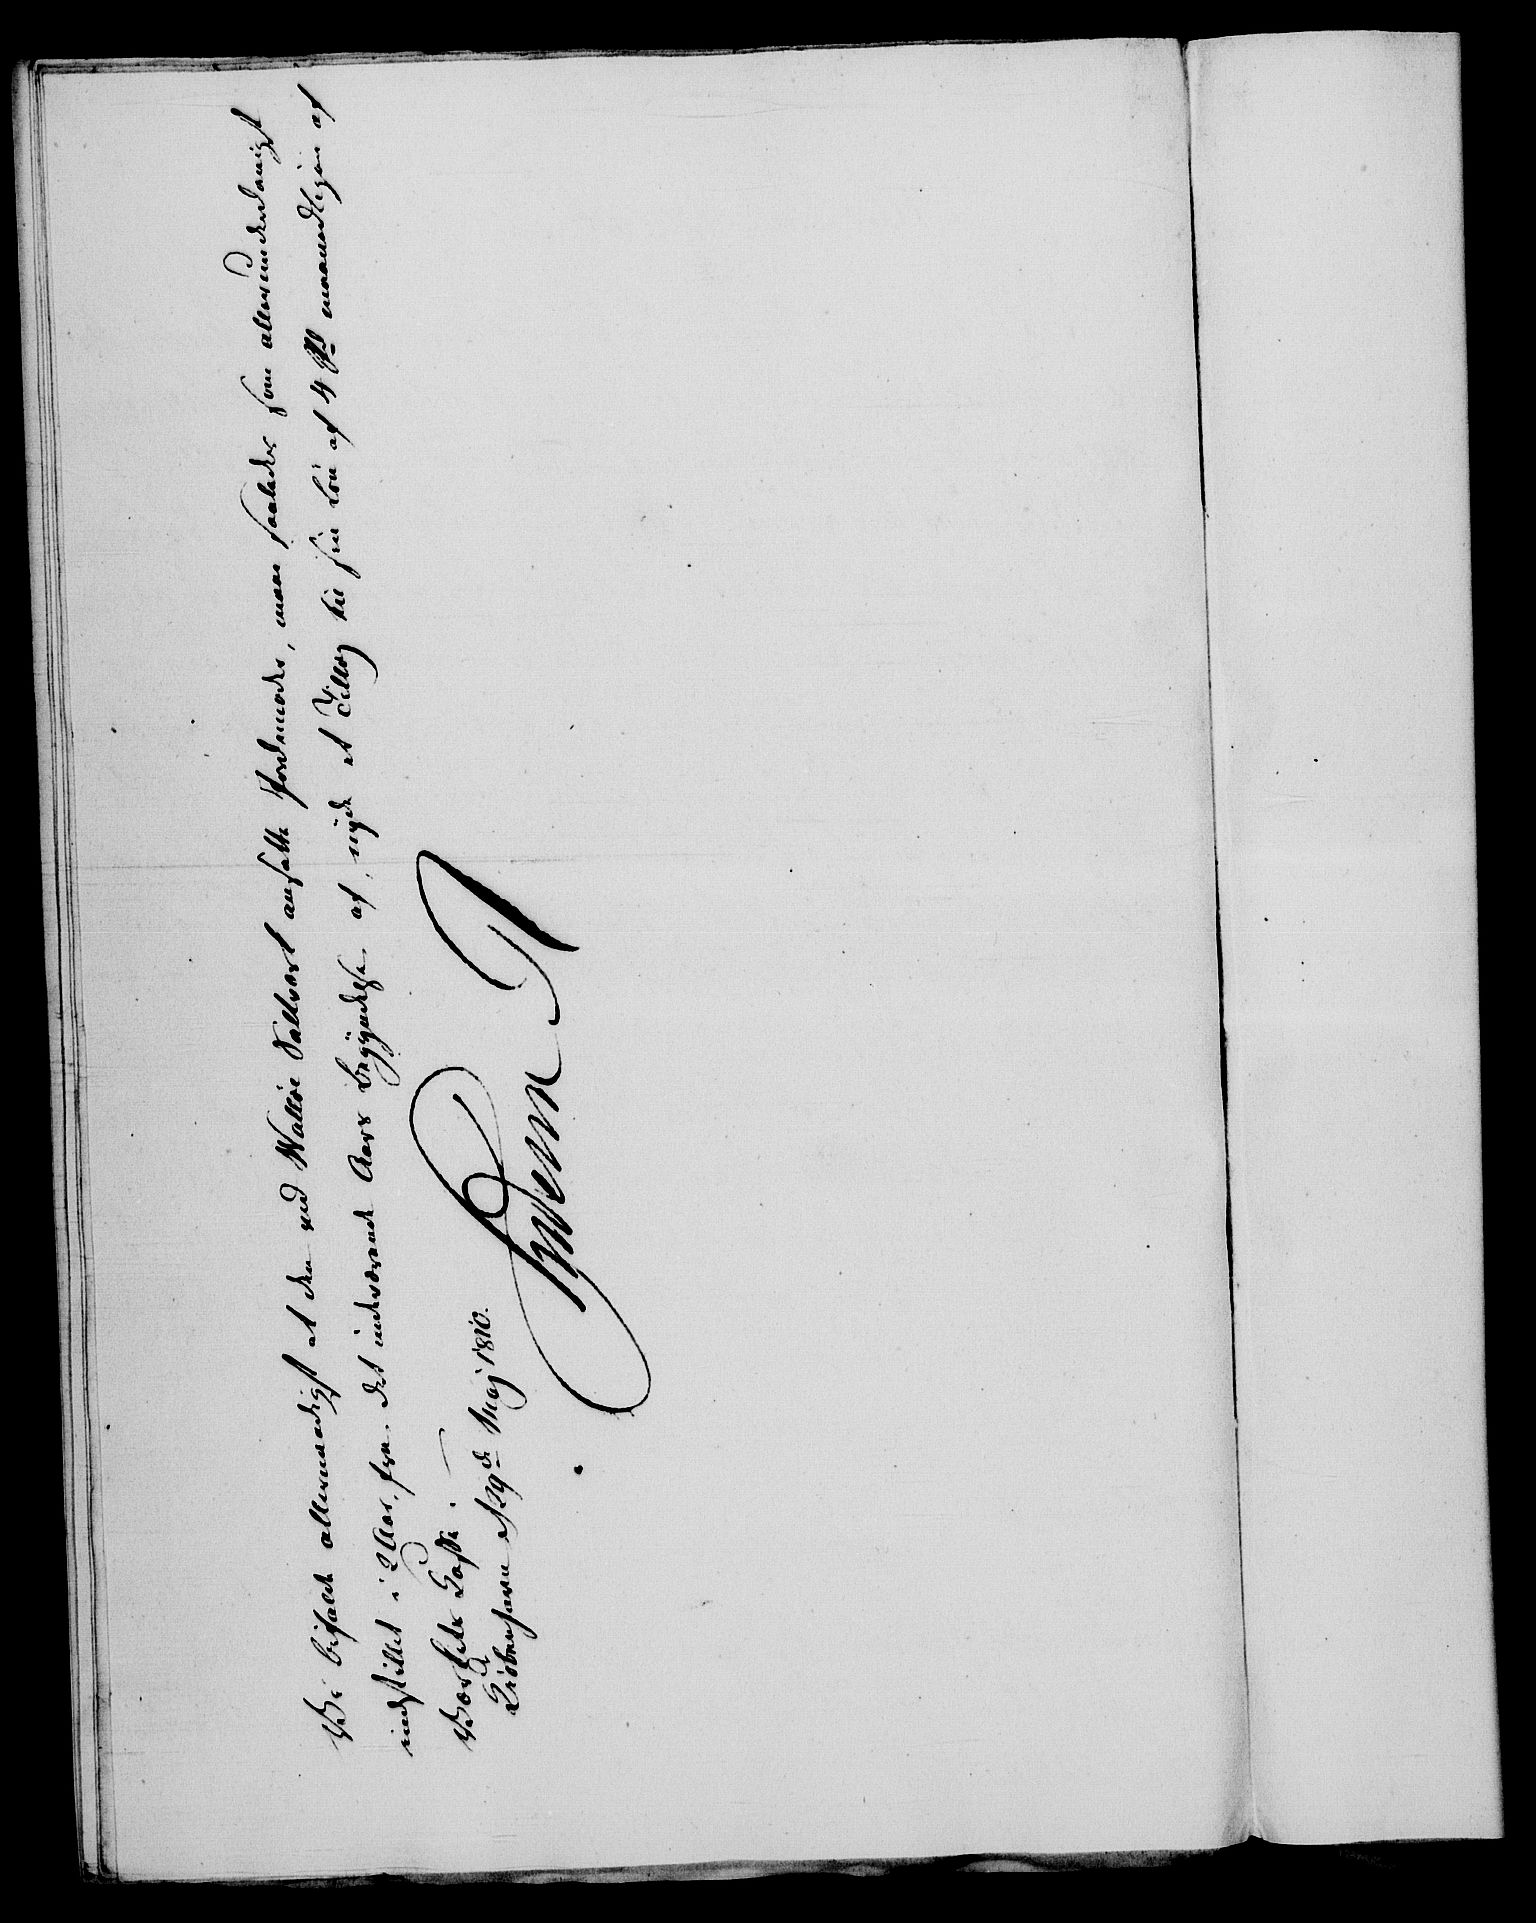 Vi bifalde allernaadigst at den ved Walløe Saltværk ansatte Jordemoder, maae saaledes som allerunderdanigst
indstillet i 2 Aar, fra det indeværende Aars Begyndelse af, nyde et Tillæg til sin Løn af 4 Rd maanedligen af
Værkets Casse.
Kiøbenhavn d 29de Maj 1810.
Frederik R